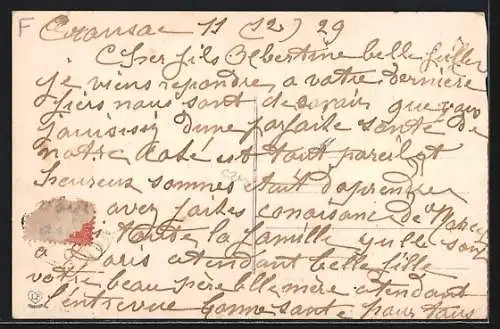 F
Cransac 11 (12) 29
Cher fils Albertine belle fille
je viens repondre a votre derniere
fiers nous sont de savoir que vous
jouisisiz d'une parfaite santé de
notre coté est tout pareil et
heureux sommes etait d'aprendre
avez faites conaisance de
toute la famille qu'elle sont
a Paris atendant belle fille
votre beau père belle mere atendant
l'entrevue bonne santé pour tous